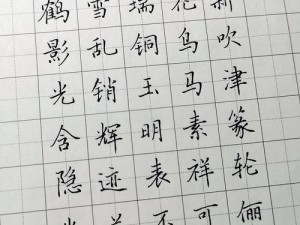 鹤雪瑞花新
影乱铜乌吹
光销玉马津
含辉明素篆
隐迹表祥轮
幽兰不可俪